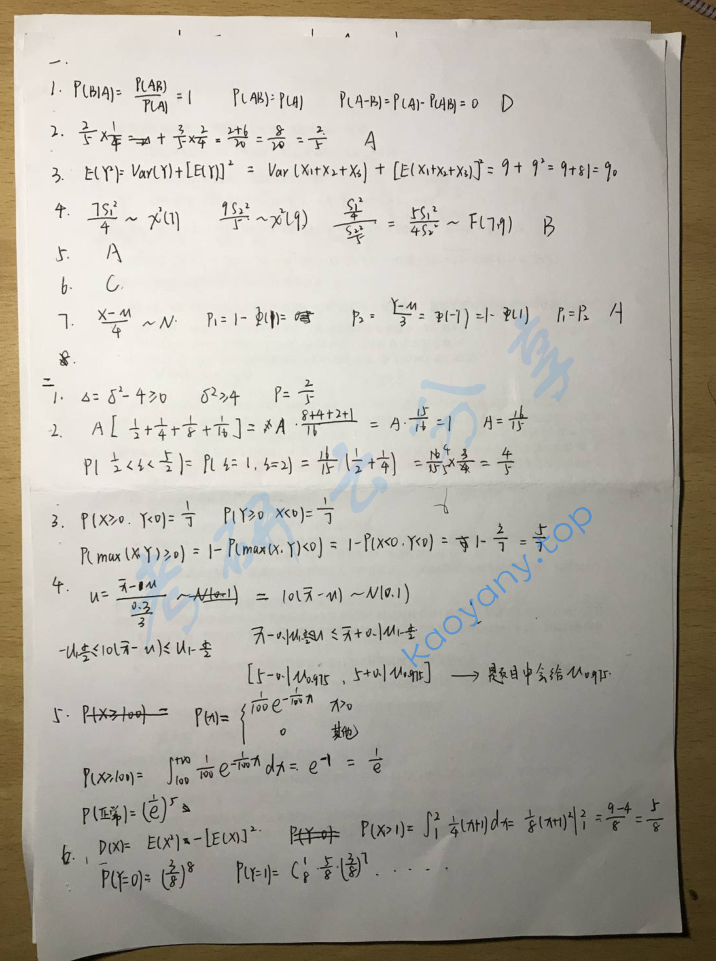 一.
1. P(B|A)= P(AB)/P(A) = 1 P(AB)=P(A) P(A-B)=P(A)-P(AB)=0 D
2. 2/5 × 1/4 + 3/5 × 2/4 = 2+6/20 = 8/20 = 2/5 A
3. E(Y²)= Var(Y)+[E(Y)]² = Var(X₁+X₂+X₃) + [E(X₁+X₂+X₃)]² = 9+9² = 9+81 = 90
4. 7S₁²/4 ~ χ²(7) 9S₂²/5 ~ χ²(9) (S₁²/4)/(S₂²/5) = 5S₁²/4S₂² ~ F(7,9) B
5. A
6. C
7. X-u/4 ~ N. P₁ = 1-Φ(1)= P₂ = Y-u/3 = Φ(-1) = 1-Φ(1) P₁=P₂ A
8.
二
1. Δ= δ²-4≥0 δ²≥4 P= 2/5
2. A[1/2+1/4+1/8+1/16] = A·8+4+2+1/16 = A·15/16 = 1 A=16/15
P(1/2<ξ<5/2)= P(ξ=1, ξ=2) = 16/15 (1/2+1/4) = 16/15 × 3/4 = 4/5
3. P(X≥0. Y<0)= 1/7 P(Y≥0 X<0)= 1/7
P(max(X,Y)≥0) = 1-P(max(X,Y)<0) = 1-P(X<0.Y<0) = 1-2/7 = 5/7
4. u= (x̄-u)/(0.3/3) ~N(0.1) = 10(x̄-u) ~N(0.1)
-u₁₋α/2 ≤10(x̄-u)≤ u₁₋α/2 x̄-0.1u₁₋α/2 ≤ u ≤ x̄+0.1u₁₋α/2
[5-0.1u0.975 , 5+0.1u0.975] → 题目中会给u0.975.
5. P(X≥100) = P(x)= { 1/100 e^(-1/100 x) x>0
0 其他
P(X≥100)= ∫₁₀₀^(+∞) 1/100 e^(-1/100 x) dx = e⁻¹ = 1/e
P(正常)=(1/e)⁵
6. D(X)= E(X²)-[E(X)]². P(Y=0) P(X>1)= ∫₁² 1/4(x+1)dx= 1/8(x+1)²|²₁ = 9-4/8 = 5/8
P(Y=0)= (3/8)⁸ P(Y=1)= C₈¹ · 5/8 · (3/8)⁷ . . . . . .
考研云分享
kaoyany.top